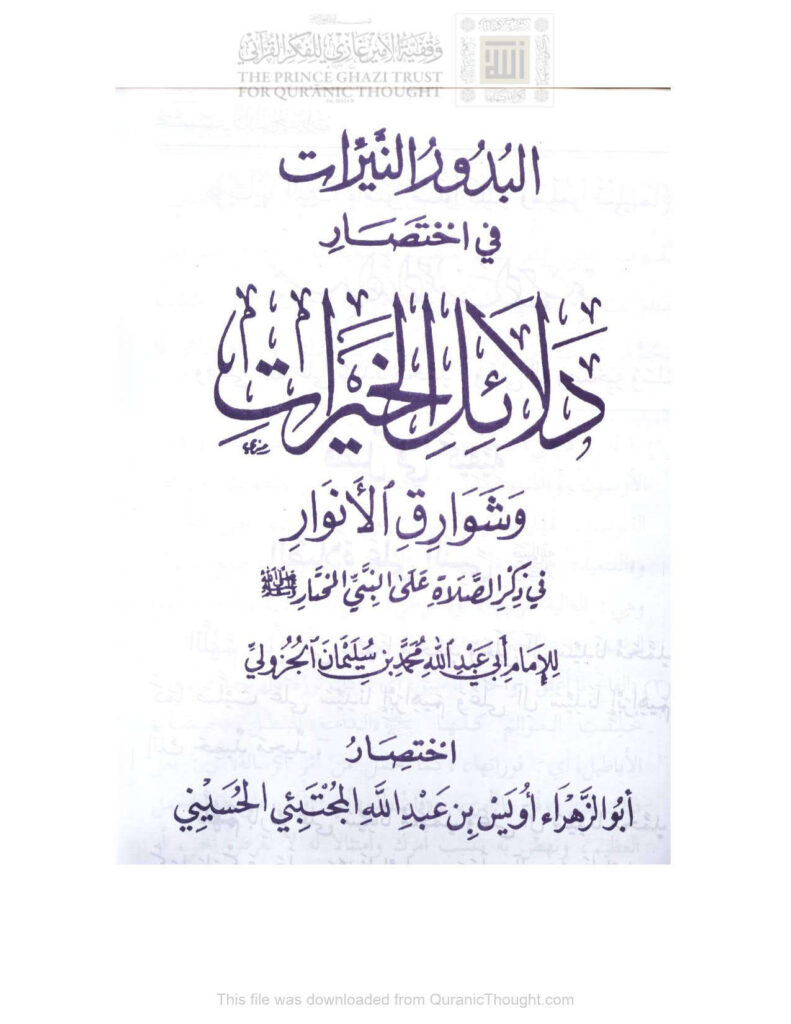 وقفية الأمير غازي للفكر القرآني
THE PRINCE GHAZI TRUST
FOR QUR'ĀNIC THOUGHT
البُدُورُ النَّيِّرَات
في اخْتِصَارِ
دَلَائِلِ الخَيْرَاتِ
وَشَوَارِقِ الأَنْوَارِ
في ذِكْرِ الصَّلَاةِ عَلَى النَّبِيِّ المُخْتَارِ ﷺ
لِلإِمَامِ أَبِي عَبْدِ اللَّهِ مُحَمَّدِ بْنِ سُلَيْمَانَ الجُزُولِيِّ
اخْتِصَارُ
أَبُو الزَّهْرَاء أُوَيْس بِن عَبْدِ اللَّهِ المُجْتَبَئِي الحُسَيْنِي
This file was downloaded from QuranicThought.com